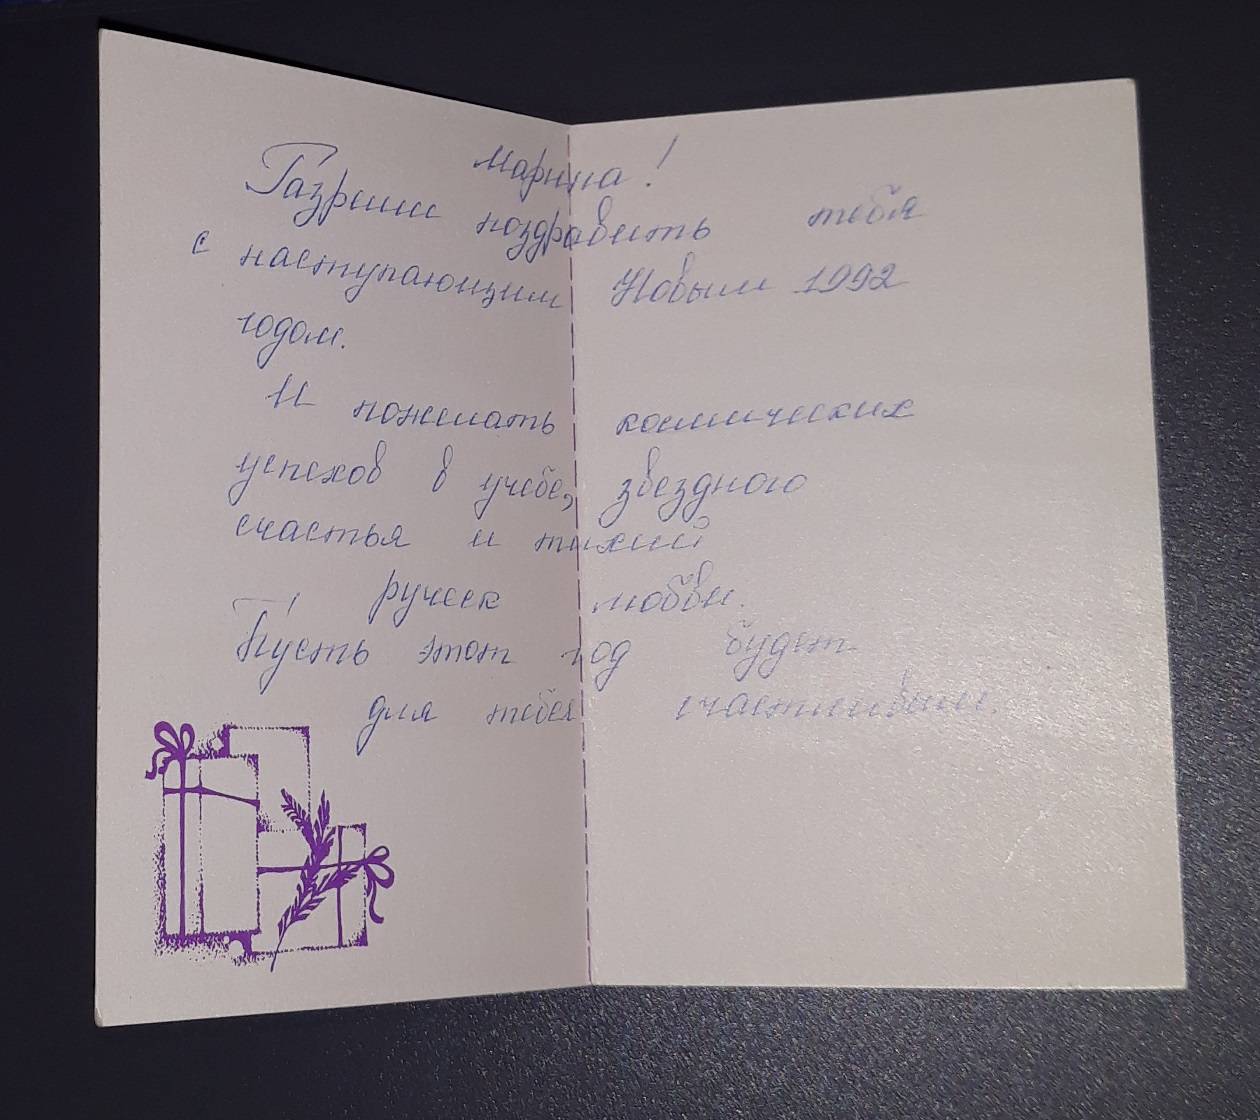 Марина!
Разреши поздравить тебя
с наступающим Новым 1992
годом.
И пожелать космических
успехов в учебе, звездного
счастья и тихий
ручеек любви.
Пусть этот год будет
для тебя счастливым.